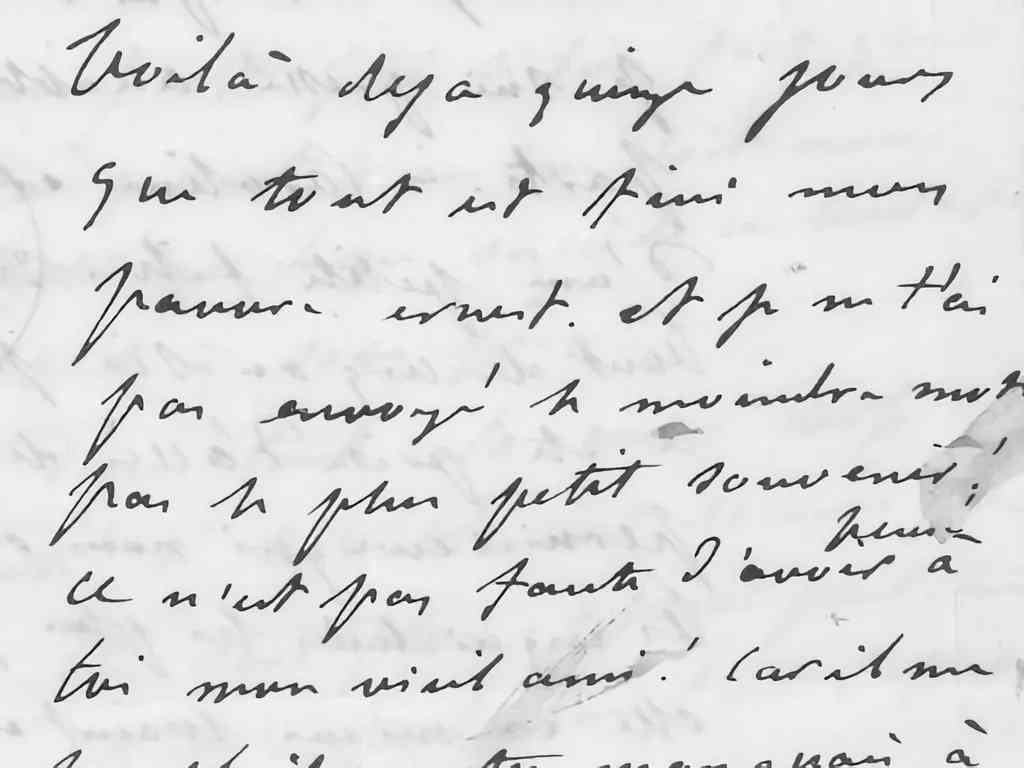 Voilà deja quinze jours
que tout est fini mon
pauvre ernest. et je ne t'ai
pas envoyé le moindre mot
pas le plus petit souvenir!
Ce n'est pas faute d'avoir pensé à
toi mon vieil ami! Car il me
tu manquais à